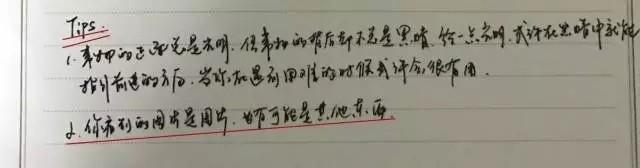 Tips.
1. 事物的正面总是光明，但事物的背后却不总是黑暗，给一点光明，或许在黑暗中就能
指引前进的方向。当你在遇到困难的时候或许会很有用。
2. 你看到的图片是图片，也有可能是其他东西。